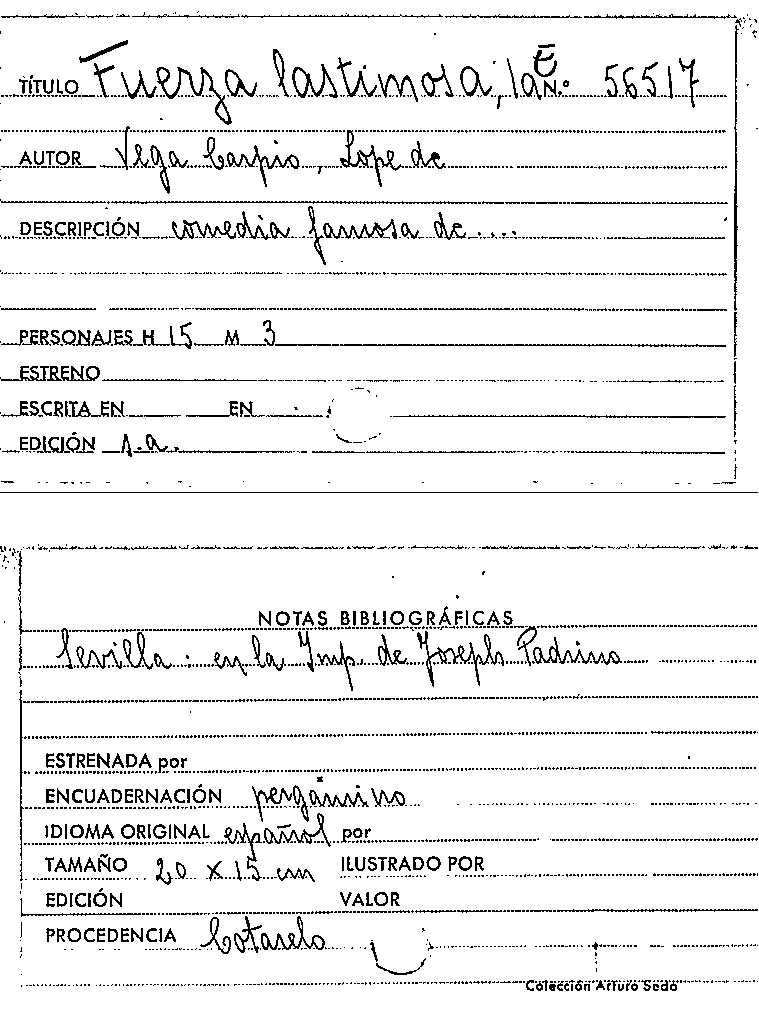 TÍTULO Fuerza lastimosa, la E N.º 56517
AUTOR Vega Carpio, Lope de
DESCRIPCIÓN comedia famosa de ....
PERSONAJES H 15 M 3
ESTRENO
ESCRITA EN EN
EDICIÓN s.a.
NOTAS BIBLIOGRÁFICAS
Sevilla : en la Imp. de Joseph Padrino
ESTRENADA por
ENCUADERNACIÓN pergamino
IDIOMA ORIGINAL español por
TAMAÑO 20 x 15 cm ILUSTRADO POR
EDICIÓN VALOR
PROCEDENCIA Cotarelo
Colección Arturo Sedó